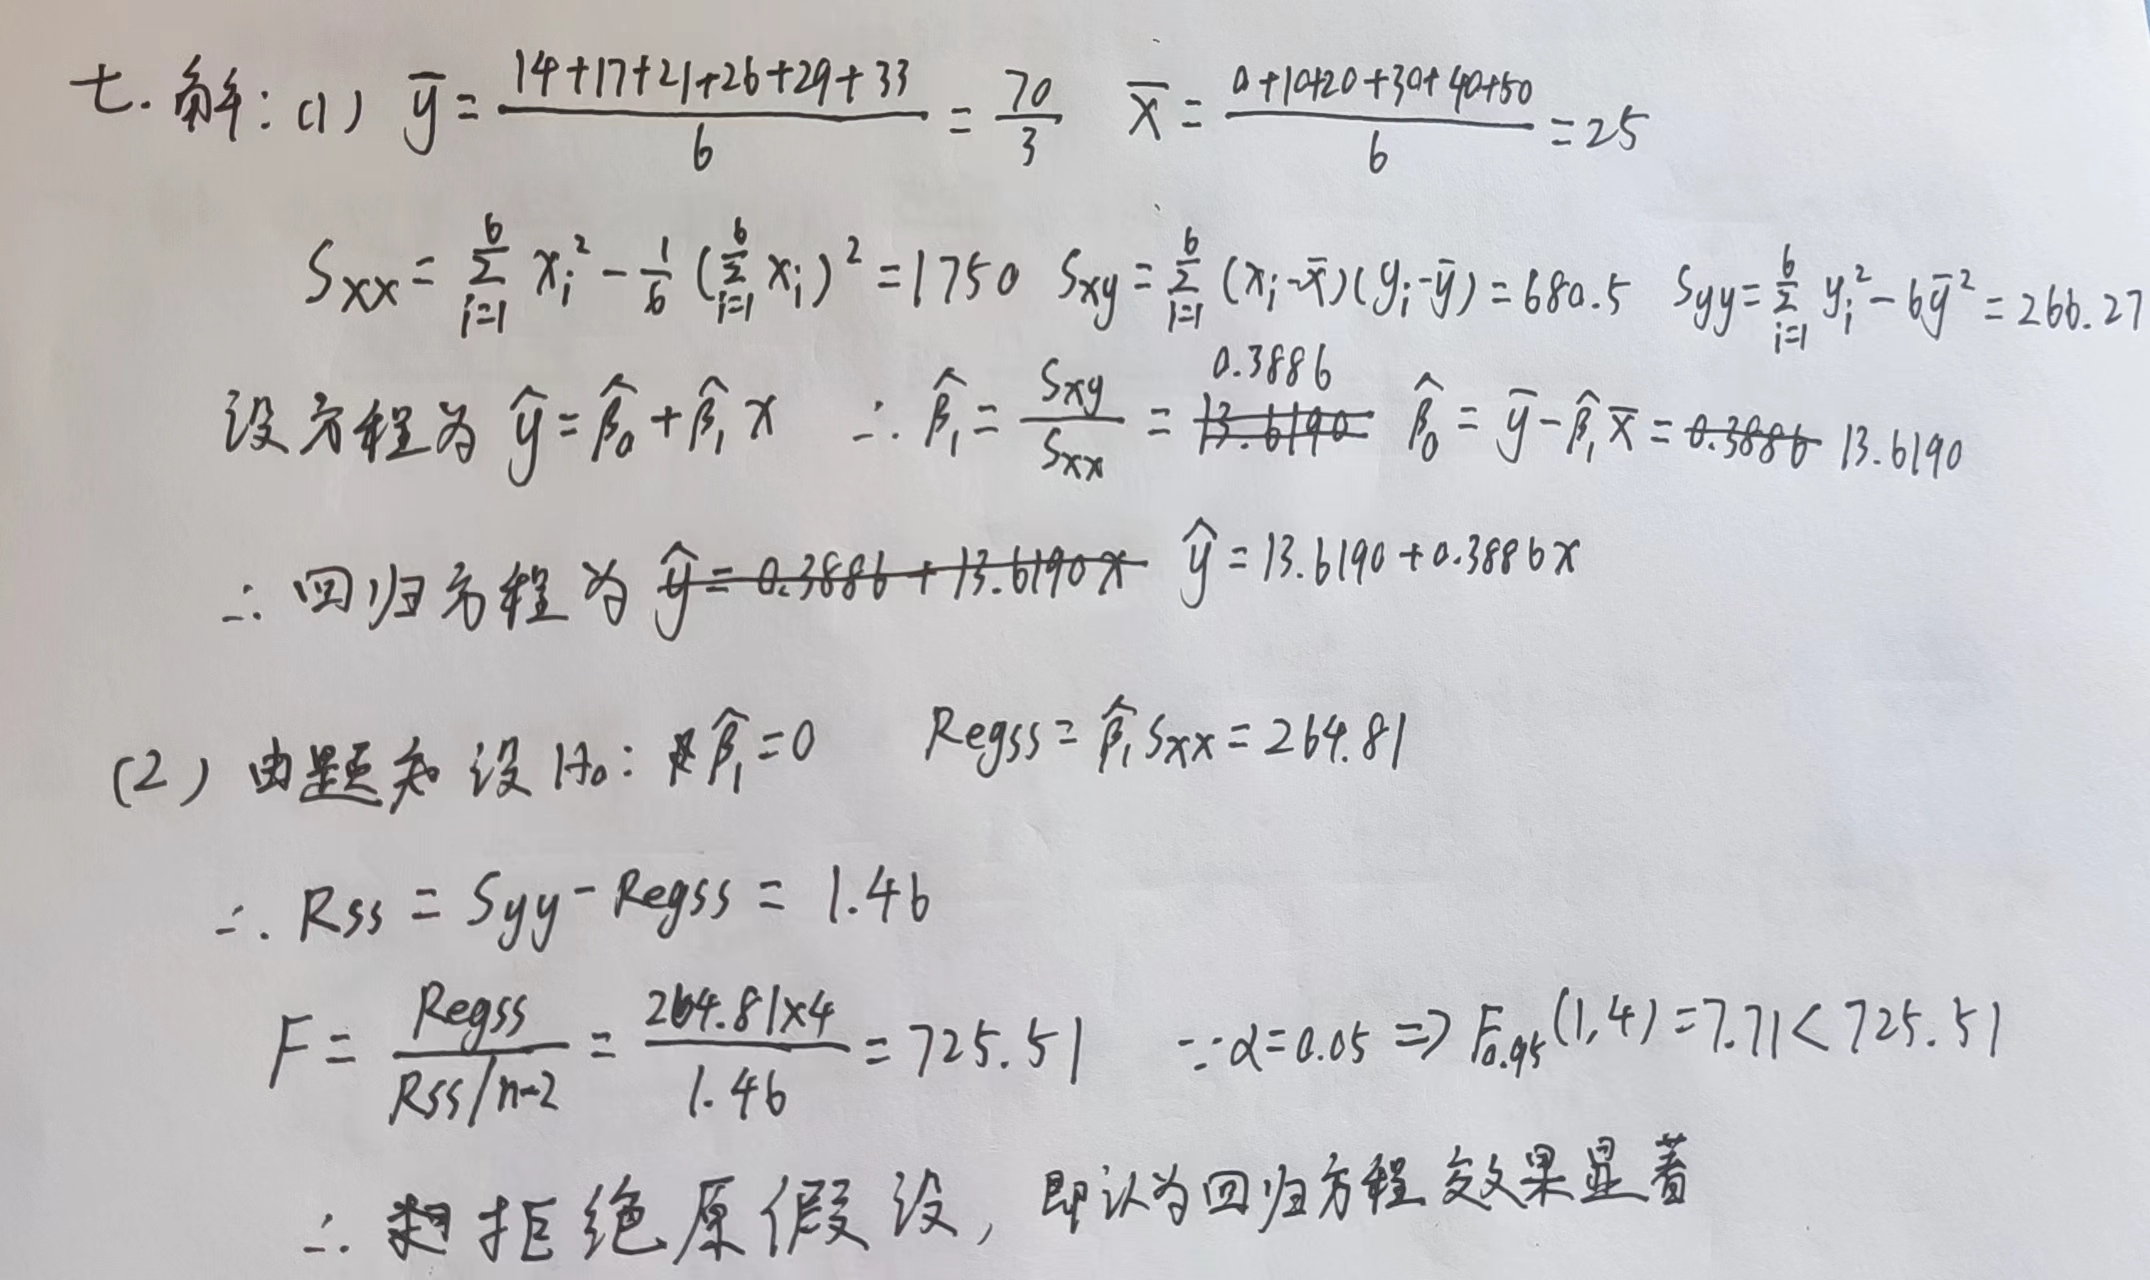 七.解:(1) ȳ = (14+17+21+26+29+33)/6 = 70/3 x̄ = (0+10+20+30+40+50)/6 = 25
Sxx = Σ_{i=1}^{6} xᵢ² - 1/6 (Σ_{i=1}^{6} xᵢ)² = 1750 Sxy = Σ_{i=1}^{6} (xᵢ-x̄)(yᵢ-ȳ) = 680.5 Syy = Σ_{i=1}^{6} yᵢ² - 6ȳ² = 266.27
设方程为 ŷ = β̂₀ + β̂₁x ∴ β̂₁ = Sxy/Sxx = ~~13.6190~~ 0.3886 β̂₀ = ȳ - β̂₁x̄ = ~~0.3886~~ 13.6190
∴ 回归方程为 ~~ŷ = 0.3886 + 13.6190x~~ ŷ = 13.6190 + 0.3886x
(2) 由题知 设 H₀: β̂₁ = 0 Regss = β̂₁Sxx = 264.81
∴ Rss = Syy - Regss = 1.46
F = Regss/(Rss/n-2) = (264.81×4)/1.46 = 725.51 ∵ α = 0.05 ⇒ F₀.₉₅(1,4) = 7.71 < 725.51
∴ 拒绝原假设, 即认为回归方程效果显著